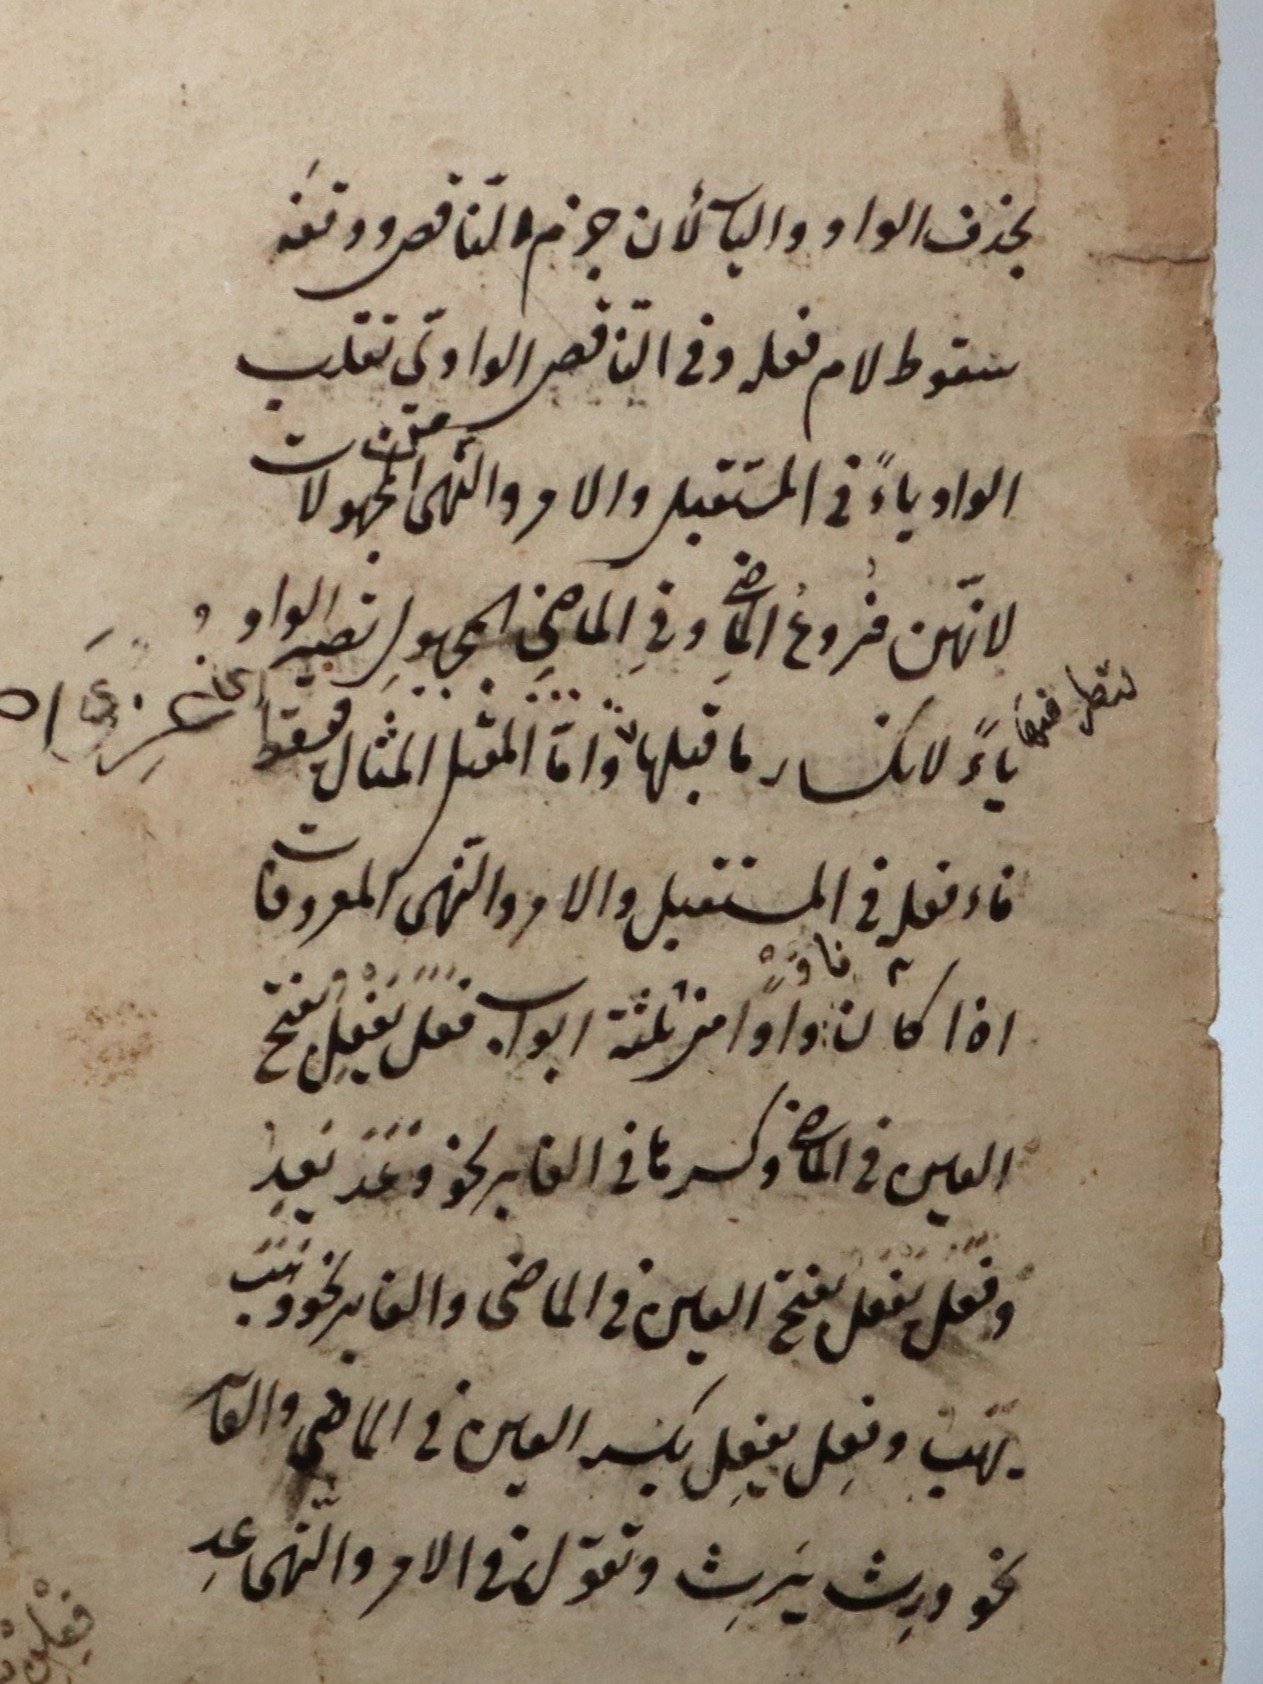 بحذف الواو والياء لأن جزم الناقص ووقفه
سقوط لام فعله وفي الناقص الواوي تقلب
الواو ياءً في المستقبل والامر والنهى المجهولات
لانهن فروع الماضي وفي الماضي المجهول تصير الواو
ياءً لانكسار ما قبلها وامّا المعتل المثال فيسقط
فاء فعله في المستقبل والامر والنهى المعروفات
اذا كان واوًا من ثلثة ابواب فعَل يفعِل بفتح
العين في الماضي وكسرها في الغابر نحو وعَد يعِدُ
وفعَل يفعَل بفتح العين في الماضى والغابر نحو وهَب
يهَب وفعِل يفعِل بكسر العين في الماضي والغا
نحو ورِث يَرِث وتقول في الامر والنّهى عِد